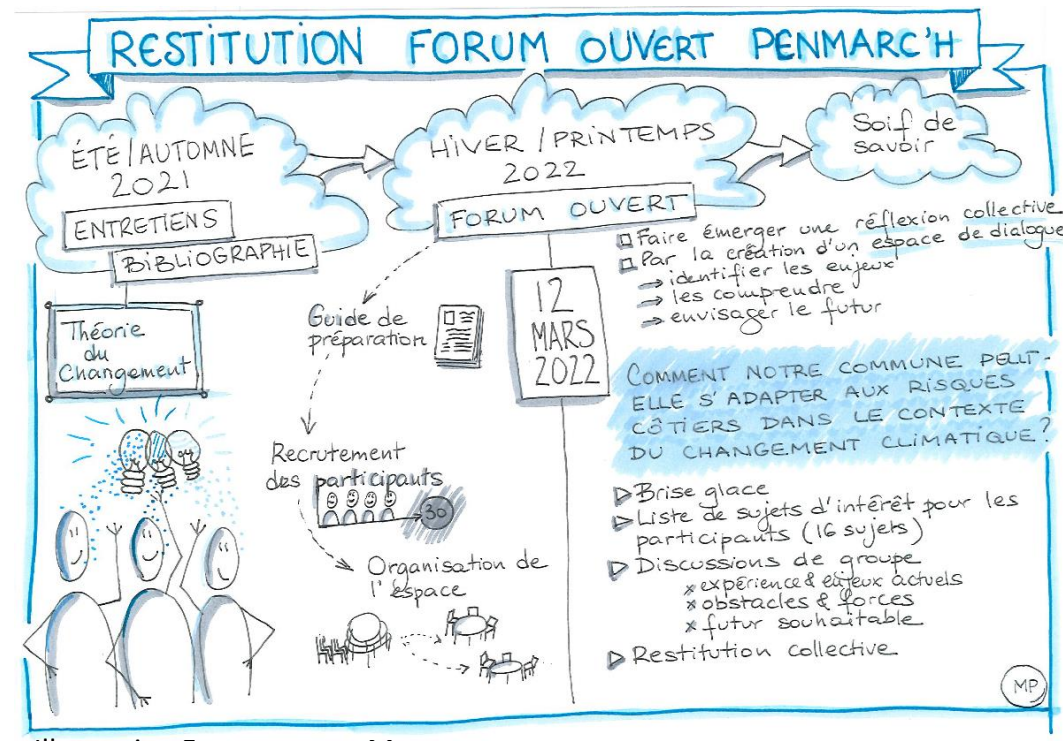 RESTITUTION FORUM OUVERT PENMARC'H
ÉTÉ/AUTOMNE
2021
ENTRETIENS
BIBLIOGRAPHIE
Théorie
du
Changement
HIVER/PRINTEMPS
2022
FORUM OUVERT
Guide de
préparation
Recrutement
des participants
30
Organisation de
l'espace
12
MARS
2022
Soif de
savoir
Faire émerger une réflexion collective
Par la création d'un espace de dialogue
→ identifier les enjeux
→ les comprendre
→ envisager le futur
COMMENT NOTRE COMMUNE PEUT-
ELLE S'ADAPTER AUX RISQUES
CÔTIERS DANS LE CONTEXTE
DU CHANGEMENT CLIMATIQUE?
Brise glace
Liste de sujets d'intérêt pour les
participants (16 sujets)
Discussions de groupe
x expérience & enjeux actuels
x obstacles & forces
x futur souhaitable
Restitution collective
MP